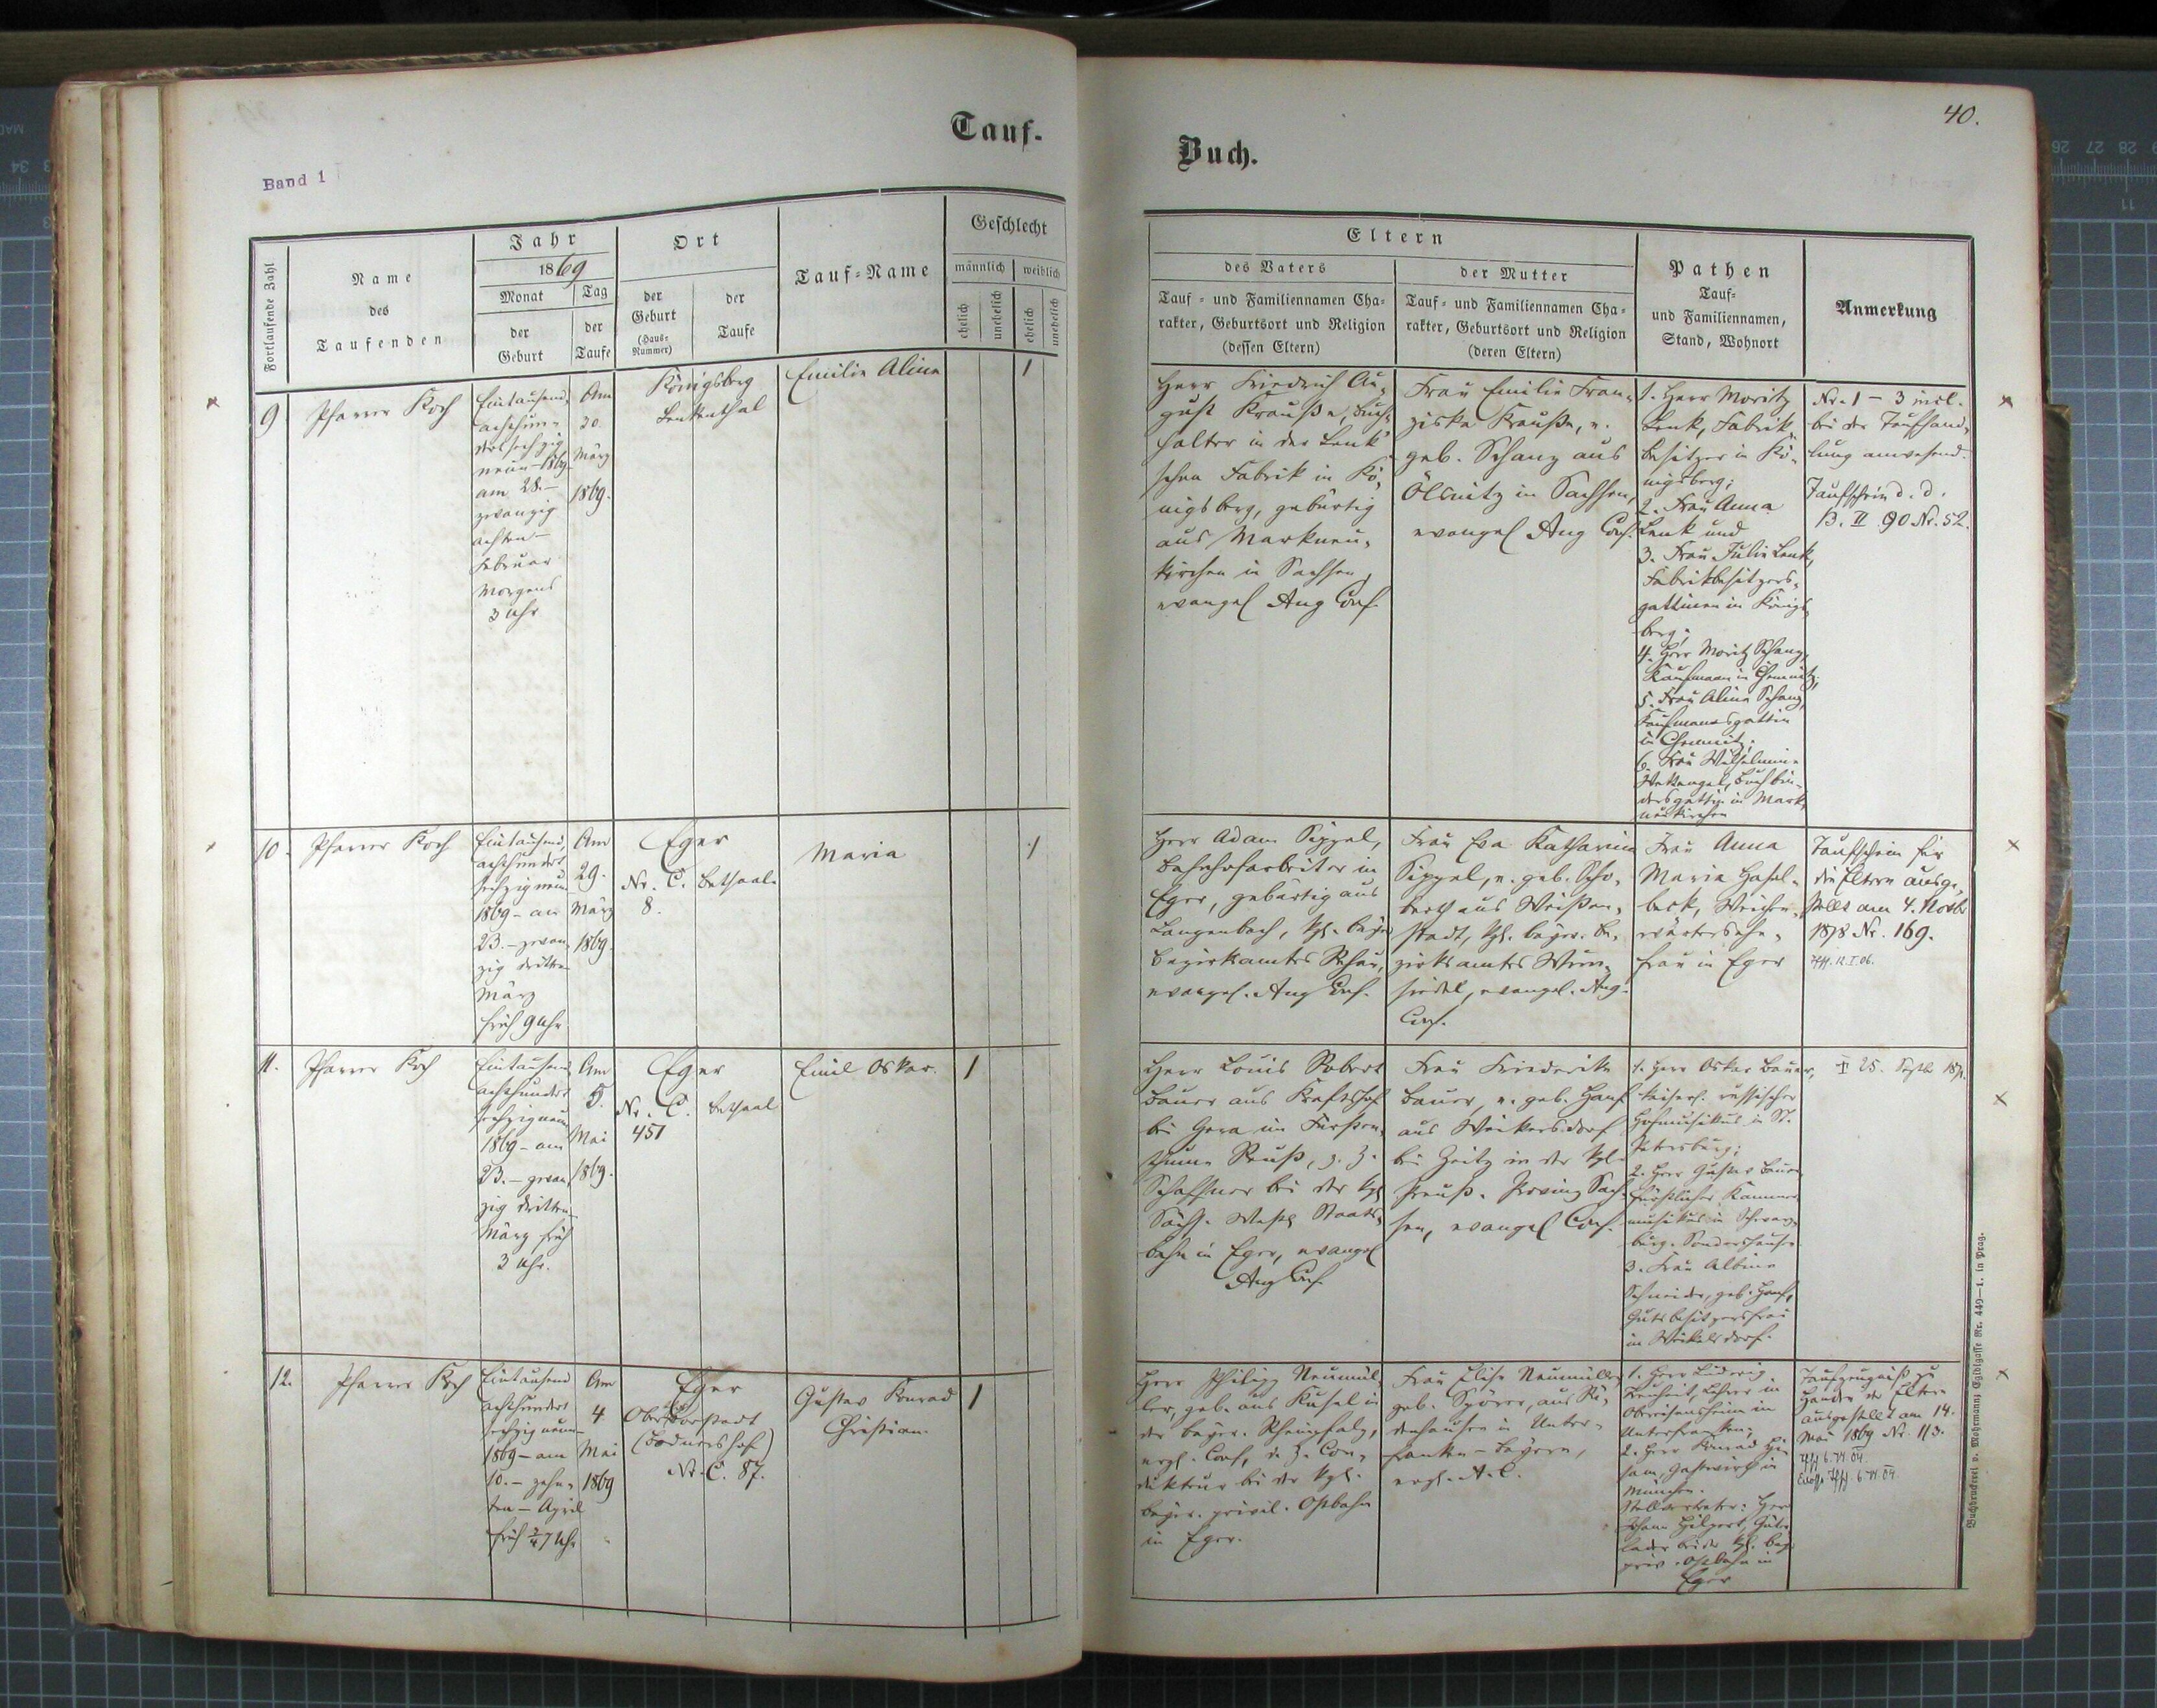 Tauf-
Buch.
40.
Band 1
Fortlaufende Zahl
Name
des
Taufenden
Jahr
1869
Monat
der
Geburt
Tag
der
Taufe
Ort
der
Geburt
(Haus-
Nummer)
der
Taufe
Tauf-Name
Geschlecht
männlich
weiblich
ehelich
unehelich
ehelich
unehelich
Eltern
des Vaters
Tauf- und Familiennamen Cha-
rakter, Geburtsort und Religion
(dessen Eltern)
der Mutter
Tauf- und Familiennamen Cha-
rakter, Geburtsort und Religion
(deren Eltern)
Pathen
Tauf-
und Familiennamen,
Stand, Wohnort
Anmerkung
9
Pfarrer Koch
Eintausend,
achthun-
dertsechzig
neun-1869
am 28.-
zwanzig
achten-
Februar
Morgens
3 Uhr
Am
30.
März
1869.
Königsberg
Leukenthal
Emilie Aline
1
Herr Friedrich Au-
gust Krauße, Buch-
halter in der Lenk'
schen Fabrik in Kö-
nigsberg, gebürtig
aus Markneu-
kirchen in Sachsen,
evangel Aug Conf.
Frau Emilie Fran-
ziska Krauße, e.
geb. Schanz aus
Ölsnitz in Sachsen,
evangel Aug Conf.
1. Herr Moritz
Lenk, Fabrik
besitzer in Kö-
nigsberg;
2. Frau Anna
Lenk und
3. Frau Julie Lenk,
Fabrikbesitzers-
gattinen in Königs-
berg;
4. Herr Moritz Schanz,
Kaufmann in Chemnitz;
5. Frau Aline Schanz,
Kaufmannsgattin
in Chemnitz;
6. Frau Wilhelmine
Buchbin-
dersgattin in Mark-
neukirchen
Nr. 1 - 3 incl.
bei der Taufhand-
lung anwesend.
Taufschein d. d.
B. II 90 Nr. 52.
10.
Pfarrer Koch
Eintausend,
achthundert
sechzigneun
1869 - am
23. - zwan-
zig dritten
März
früh 9 Uhr
Am
29.
März
1869.
Eger
Nr. C.
8.
Bethaal.
Maria
1
Herr Adam Sippel,
Bahnhofarbeiter in
Eger, gebürtig aus
Langenbach, kgl. bayr.
Bezirksamtes Rehau,
evangel. Aug Conf.
Frau Eva Katharina
Sippel, e. geb. Scho-
berth aus Weißen-
stadt, kgl. bayer. Be-
zirksamtes Wun-
siedel, evangel. Aug.
Conf.
Frau Anna
Maria Hasel-
beck, Weichen-
wärtersehe-
frau in Eger
Taufschein für
die Eltern ausge-
stellt am 4. Novbr
1878 Nr. 169.
12. I. 06.
11.
Pfarrer Koch
Eintausend
achthundert
sechzigneun
1869 - am
23. - zwan-
zig dritten
März früh
3 Uhr.
Am
5.
Mai
1869.
Eger
Nr. C.
451
Bethaal
Emil Oskar.
1
Herr Louis Robert
Bauer aus
bei Gera im Fürsten-
thume Reuß, z. Z.
Schaffner bei der kgl
Sächs. Westl Staats-
bahn in Eger, evangel
Aug Conf.
Frau Friederike
Bauer, e. geb. Hanf
aus Weikersdorf
bei Zeitz in der kgl.
Preuß. Provinz Sach-
sen, evangel Conf.
1. Herr Oskar Bauer,
kaiserl. russischer
Hofmusikus in St.
Petersburg;
2. Herr Gustav Bauer
fürstlicher Kammer-
musikus in Schwarz-
burg-Sondershausen
3. Frau Albine
Schneider, geb. Hanf,
Gutsbesitzersfrau
in Weikelsdorf.
I 25. Septb 187.
12.
Pfarrer Koch
Eintausend
achthundert
sechzigneun-
1869 - am
10. - zehn-
ten - April
früh 3/4 7 Uhr
Am
4
Mai
1869
Eger
Ober Vorstadt
(Bodnershof)
Nr. C. 87.
Gustav Konrad
Christian.
1
Herr Philipp Neumül-
ler, geb. aus Kusel in
der bayer. Rheinpfalz,
evgl. Conf, d. Z. Con-
dukteur bei der kgl.
bayer. privil. Ostbahn
in Eger.
Frau Elise Neumüller
geb. Spörer, aus Rü-
denhausen in Unter-
franken - Bayern,
evgl. A. C.
1. Herr Ludwig
Lehrer in
Obereisensheim in
Unterfranken;
2. Herr Konrad
Gastwirth in
München.
Stellvertreter: Herr
Johann Hilpert, Güter
lader bei der kgl. bay.
priv. Ostbahn in
Eger
Taufzeugniß zu
Handen der Eltern
ausgestellt am 14.
Mai 1869 Nr. 113.
Buchdruckerei v. Mohrmann, Egidigasse Nr. 449—1. in Prag.